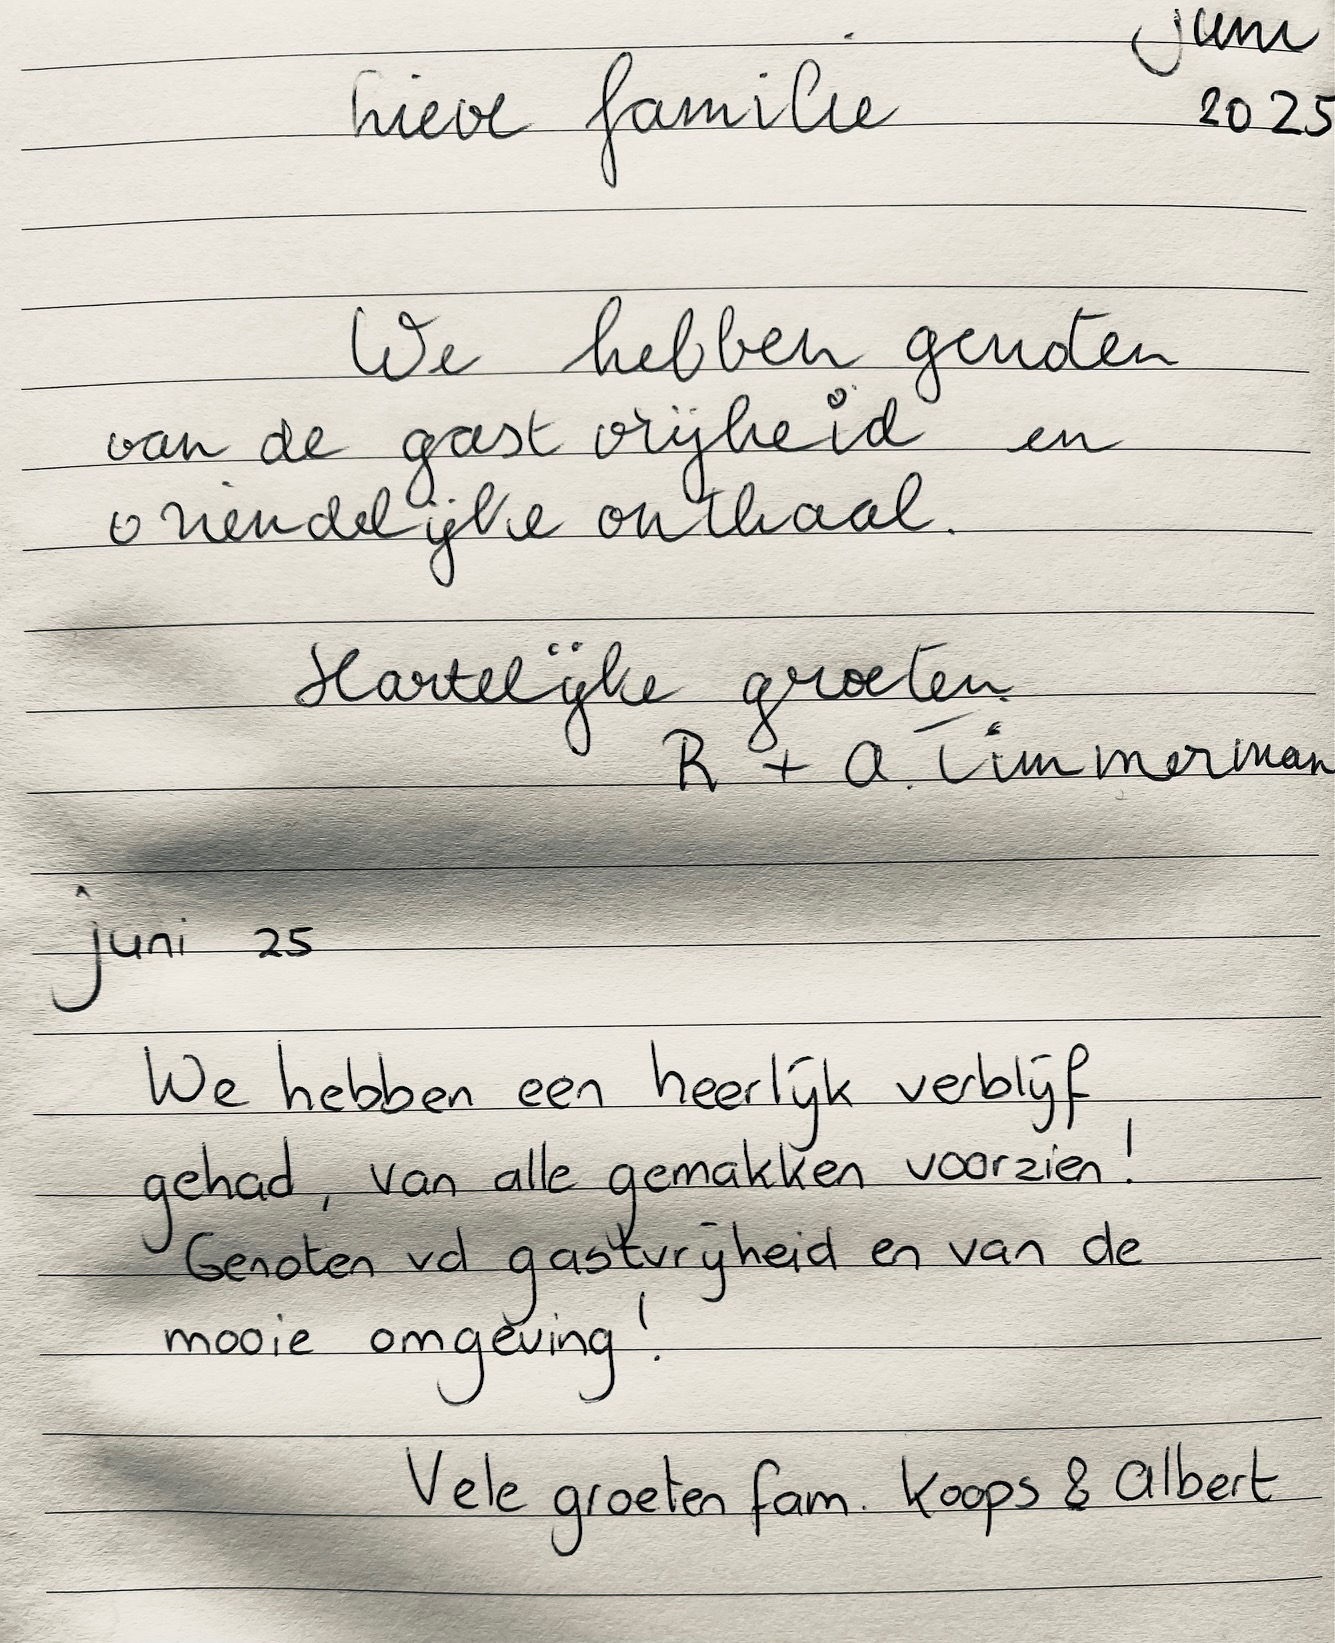 juni
2025
Lieve familie
We hebben genoten
van de gastvrijheid en
vriendelijke onthaal.
Hartelijke groeten
R + A. Timmerman
juni 25
We hebben een heerlijk verblijf
gehad, van alle gemakken voorzien!
Genoten vd gastvrijheid en van de
mooie omgeving!
Vele groeten fam. Koops & Albert